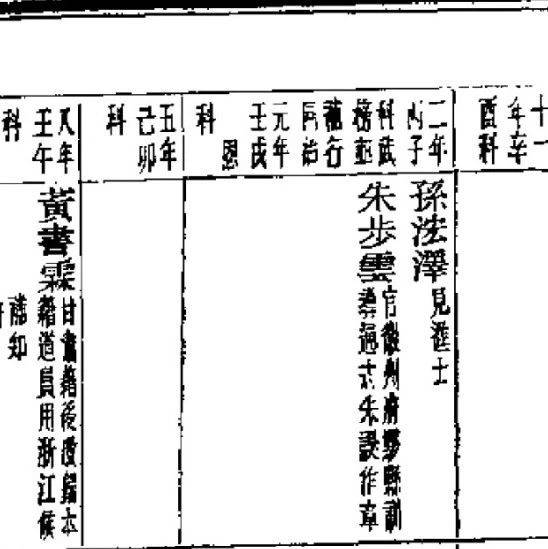 十一
年辛
酉科
二年
丙子
科武
榜並
補行
同治
元年
壬戌
恩
科
孫法澤見進士
朱步雲官徽州府黟縣訓
導通志朱誤作章
五年
己卯
科
八年
壬午
科
黃書霖甘肅籍後改歸本
籍道員用浙江候
補知